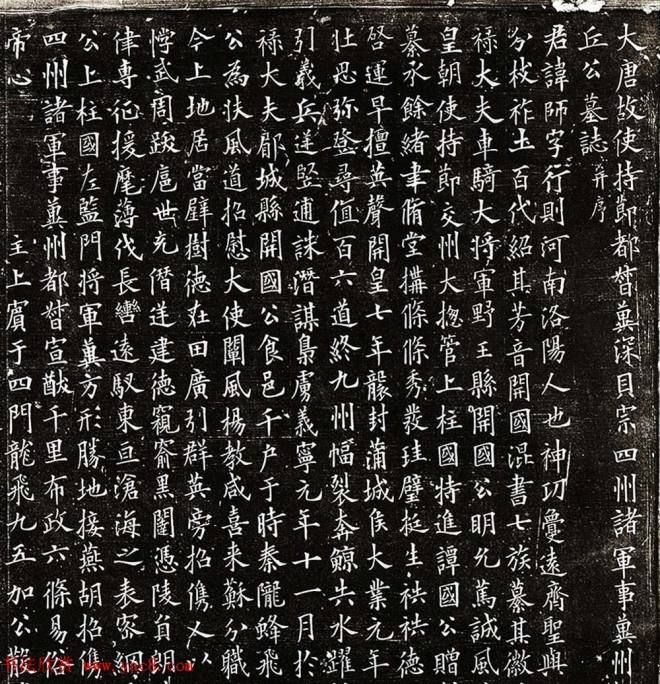 大唐故使持節都督冀深貝宗四州諸軍事冀州
丘公墓誌并序
君諱師字行則河南洛陽人也神功疊遠齊聖與
分枝祚土百代紹其芳音開國混書七族纂其徽
祿大夫車騎大將軍野王縣開國公明允篤誠風
皇朝使持節交州大揔管上柱國特進譚國公贈
纂承餘緒聿脩堂搆條條秀發珪璧挺生祑祑德
啓運早擅英聲開皇七年襲封蒲城侯大業元年
壯思弥登尋值百六道終九州幅裂奔鯨共水躍
引義兵逆竪逋誅潛謀梟虜義寧元年十一月於
祿大夫郿城縣開國公食邑千户于時秦隴蜂飛
公為扶風道招慰大使闡風揚教咸喜来蘇分職
今上地居當璧樹德在田廣引群英旁招儁乂以
悖武周跋扈世充僭逆建德窺窬黑闥憑陵自朗
律專征援麾薄伐長轡遠馭東亘滄海之表
公上柱國左監門將軍冀方形勝地接燕胡招儁
四州諸軍事冀州都督宣猷千里布政六條易俗
帝心 主上賓于四門龍飛九五加公散
书法欣赏 www.yac8.com